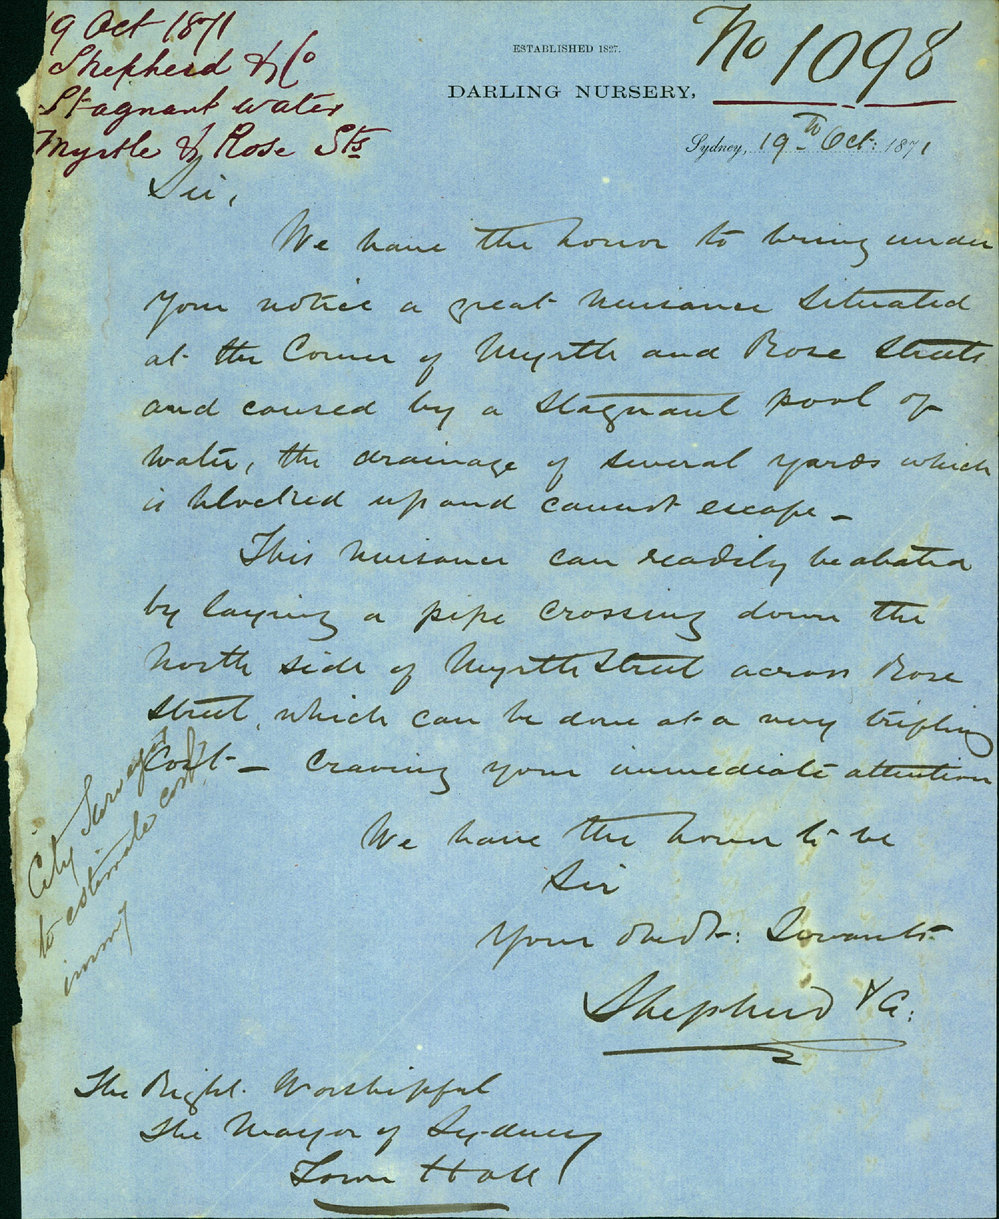 19 Oct 1871
Shepherd & Co
Stagnant water
Myrtle & Rose Sts
No 1098
ESTABLISHED 1827.
DARLING NURSERY,
Sydney, 19th Oct: 1871
Sir,
We have the honor to bring under
your notice a great nuisance situated
at the Corner of Myrtle and Rose Streets
and caused by a stagnant pool of
water, the drainage of several yards which
is blocked up and cannot escape –
This nuisance can readily be abated
by laying a pipe crossing down the
North side of Myrtle Street across Rose
Street, which can be done at a very trifling
Cost – Craving your immediate attention
We have the honor to be
Sir
Your Obedt: Servants
Shepherd & Co:
The Right Worshipful
The Mayor of Sydney
Town Hall
City Surveyor
to estimate cost